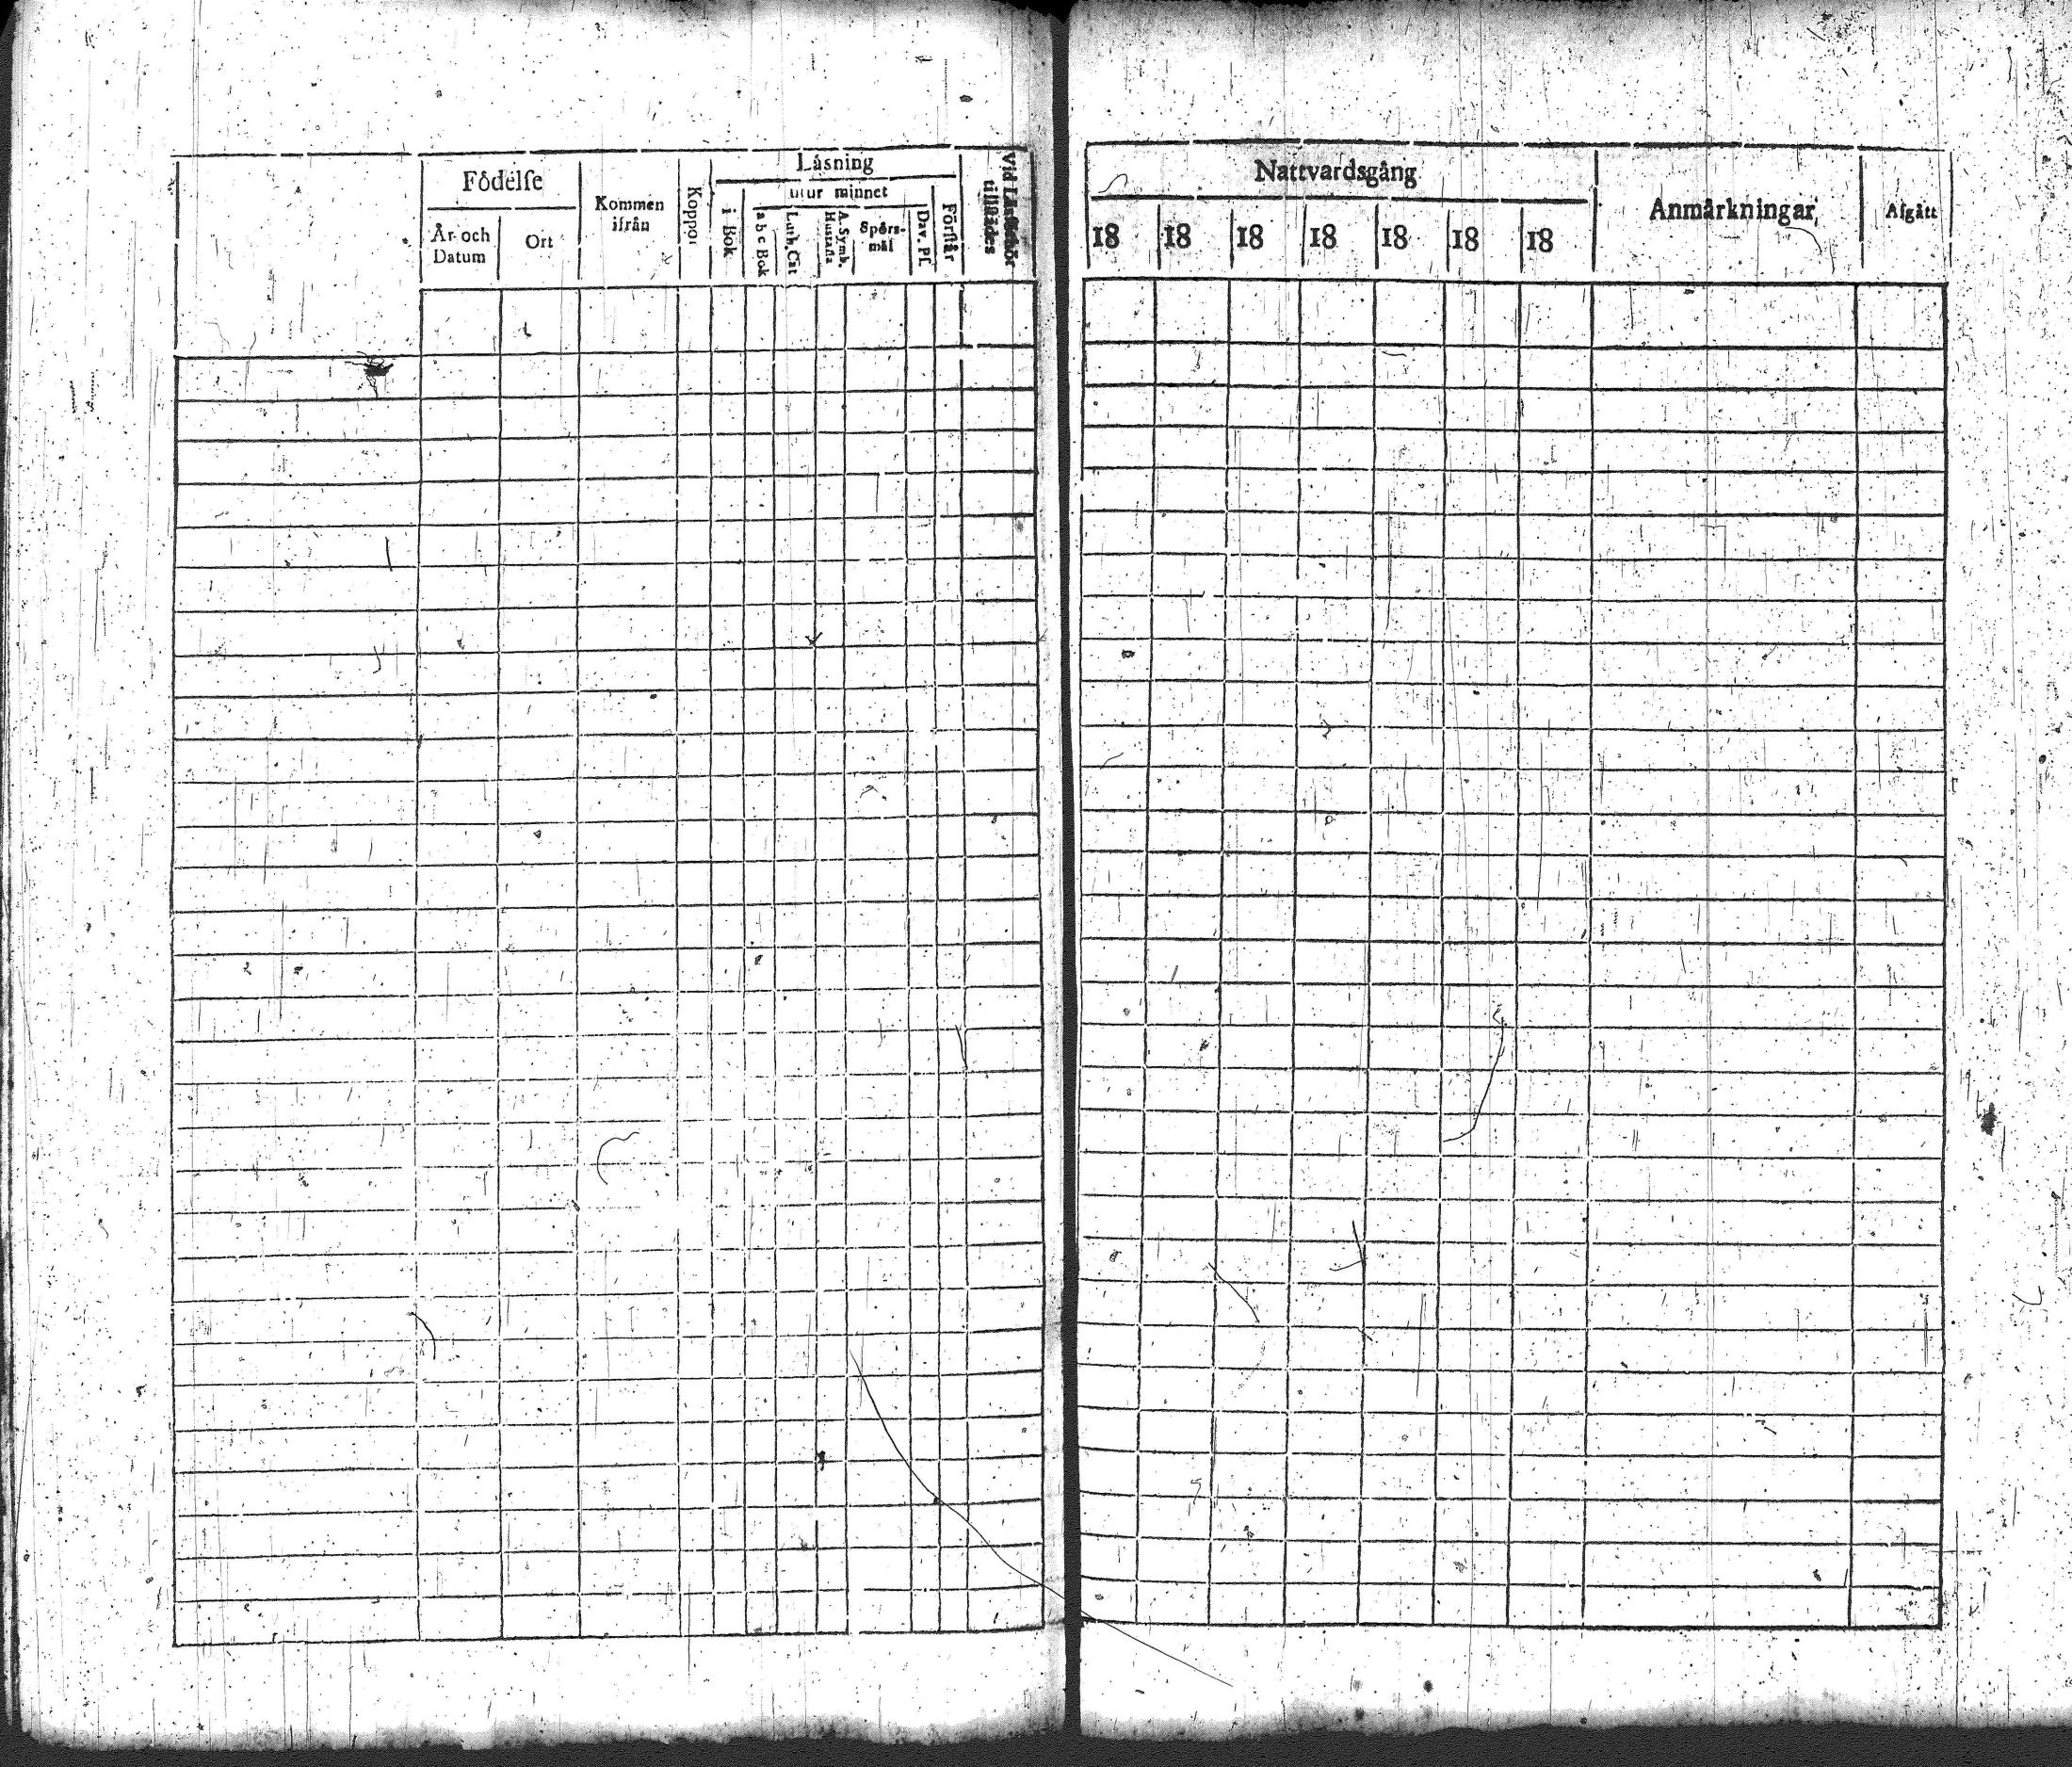 Födelse
År och
Datum
Ort
Kommen
ifrån
Koppor
Läsning
i Bok
utur minnet
a b c Bok
Luth. Cat
A. Symb.
Hustafla
Spörs-
mål
Dav. Pf.
Förstår
Vid Läsförhör
tillstädes
Nattvardsgång
18 18 18 18 18 18 18
Anmärkningar
Afgått